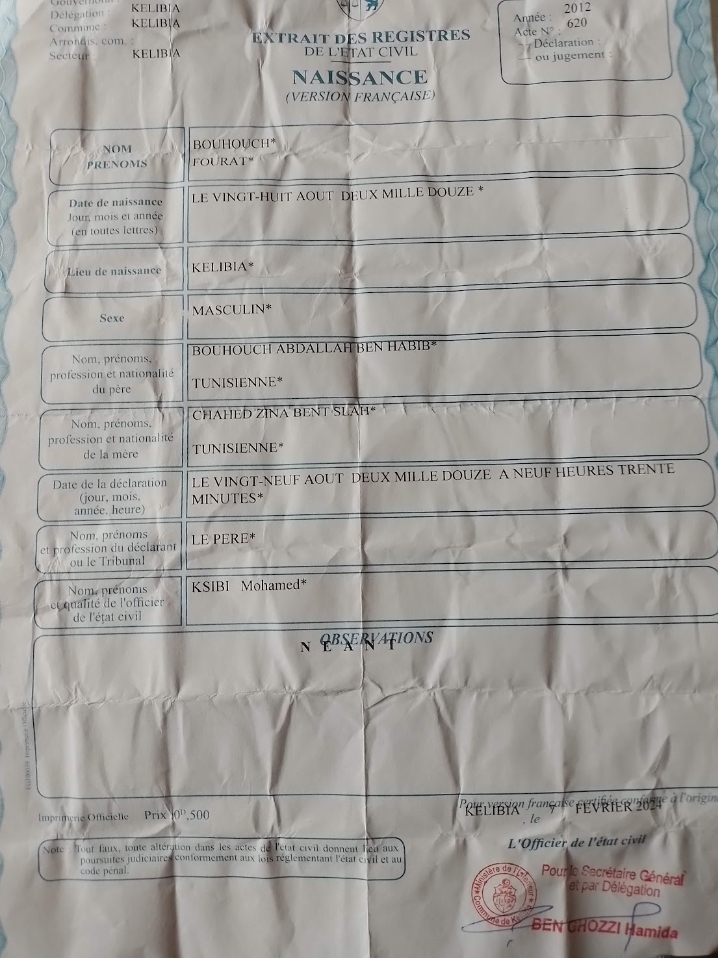 Délégation : KELIBIA
Commune : KELIBIA
Arrondis. com. :
Secteur : KELIBIA
EXTRAIT DES REGISTRES
DE L'ETAT CIVIL
NAISSANCE
(VERSION FRANÇAISE)
Année : 2012
Acte N° : 620
— Déclaration :
— ou jugement :
NOM
PRENOMS
BOUHOUCH*
FOURAT*
Date de naissance
Jour, mois et année
(en toutes lettres)
LE VINGT-HUIT AOUT DEUX MILLE DOUZE *
Lieu de naissance
KELIBIA*
Sexe
MASCULIN*
Nom, prénoms,
profession et nationalité
du père
BOUHOUCH ABDALLAH BEN HABIB*
TUNISIENNE*
Nom, prénoms,
profession et nationalité
de la mère
CHAHED ZINA BENT SLAH*
TUNISIENNE*
Date de la déclaration
(jour, mois,
année, heure)
LE VINGT-NEUF AOUT DEUX MILLE DOUZE A NEUF HEURES TRENTE
MINUTES*
Nom, prénoms
et profession du déclarant
ou le Tribunal
LE PERE*
Nom, prénoms
et qualité de l'officier
de l'état civil
KSIBI Mohamed*
OBSERVATIONS
N E A N T
Imprimerie Officielle Prix 0ᴰ,500
Pour version française certifiée conforme à l'origin
KELIBIA , le 7 FEVRIER 2024
L'Officier de l'état civil
Note : Tout faux, toute altération dans les actes de l'état civil donnent lieu aux
poursuites judiciaires conformement aux lois réglementant l'état civil et au
code pénal.
Pour le Secrétaire Général
et par Délégation
BEN GHOZZI Hamida
Ministère de l'Intérieur
Commune de